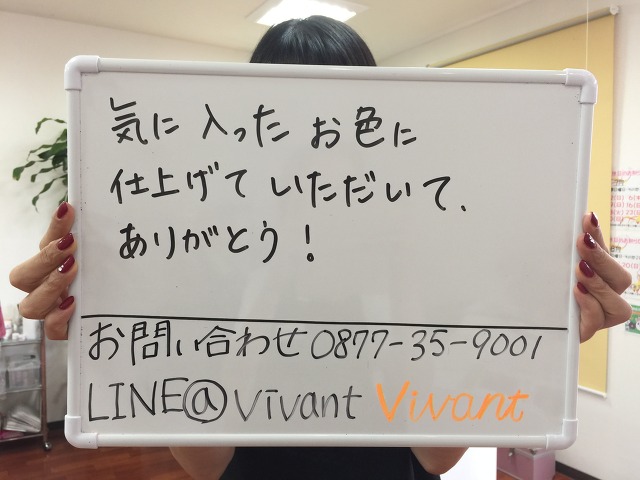 気に入ったお色に
仕上げていただいて、
ありがとう！
お問い合わせ0877-35-9001
LINE@vivant Vivant